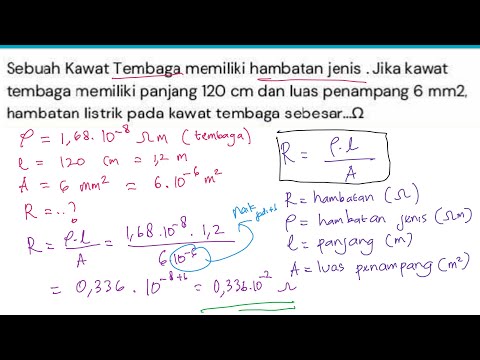 Sebuah Kawat Tembaga memiliki hambatan jenis . Jika kawat
tembaga memiliki panjang 120 cm dan luas penampang 6 mm2,
hambatan listrik pada kawat tembaga sebesar...Ω
ρ = 1,68.10⁻⁸ Ωm (tembaga)
l = 120 cm = 1,2 m
A = 6 mm² = 6.10⁻⁶ m²
R = ..?
R = ρ.l / A = 1,68.10⁻⁸ . 1,2 / 6.10⁻⁶
= 0,336 . 10⁻⁸⁺⁶ = 0,336.10⁻² Ω
R = ρ.l / A
R = hambatan (Ω)
ρ = hambatan jenis (Ωm)
l = panjang (m)
A = luas penampang (m²)